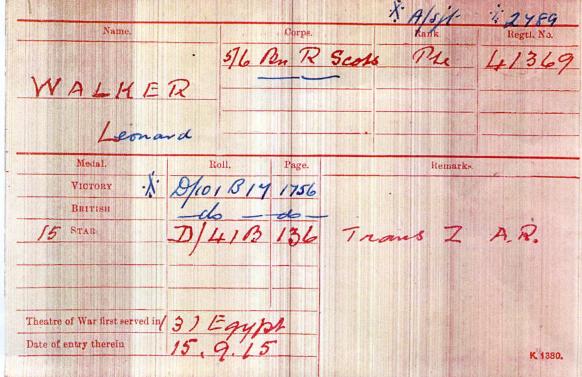 ※ A/Sjt ※ 2489
Name. Corps. Rank. Regtl. No.
5/6 Bn R Scots Pte 41369
WALKER
Leonard
Medal. Roll. Page. Remarks.
VICTORY ※ D/101 B 17 1756
BRITISH —do— —do—
15 STAR D/41B 136 Trans Z A.R.
Theatre of War first served in (3) Egypt
Date of entry therein 15.9.15
K. 1380.